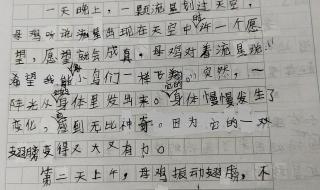 一天晚上，一颗流星划过天空，
母鸡听说流星出现在天空中时许一个愿
望，愿望就会成真。母鸡对着流星说：
希望我能像小鸟们一样飞翔。突然，一
阵光从它的身体里发出来。它的身体慢慢发生了
变化，感到无比神奇。因为它的一双
翅膀变得又大又有力。
第二天上午，母鸡振动翅膀，不